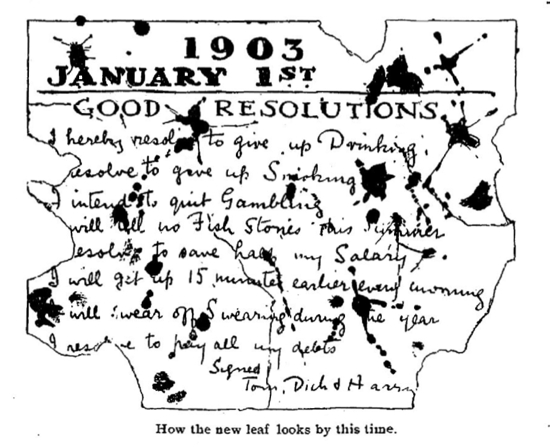 1903
JANUARY 1ST
GOOD RESOLUTIONS
I hereby resolve to give up Drinking.
resolve to give up Smoking
I intend to quit Gambling
will tell no Fish Stories this summer
resolve to save half my Salary
I will git up 15 minutes earlier every morning
will swear off Swearing during the year
I resolve to pay all my debts
Signed
Tom, Dick & Harry
How the new leaf looks by this time.